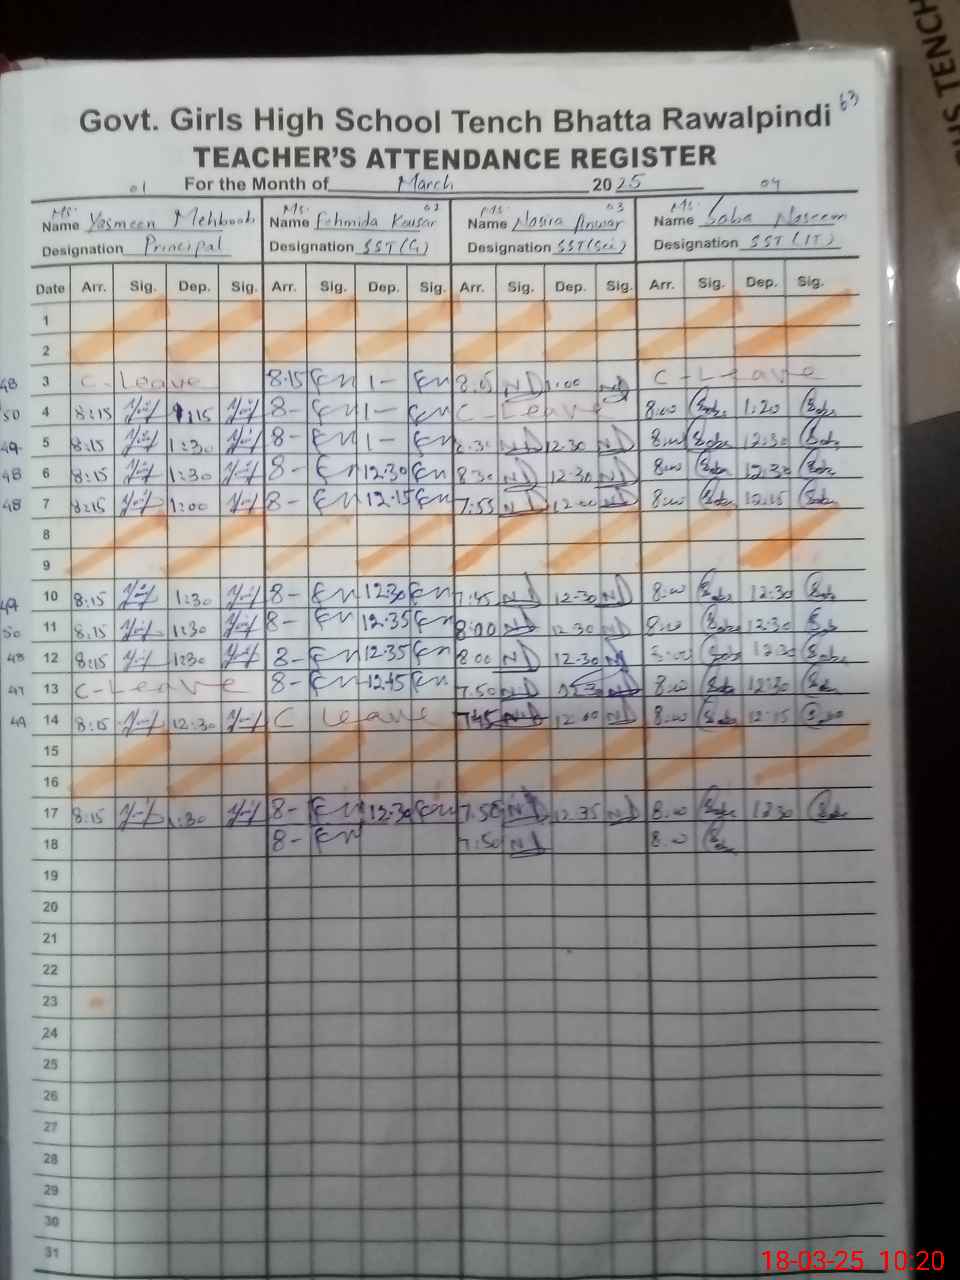 63
Govt. Girls High School Tench Bhatta Rawalpindi
TEACHER'S ATTENDANCE REGISTER
01 For the Month of March 2025 04
Ms. Name Yasmeen Mehboob Ms. Name Fehmida Kousar 02 Ms. Name Nasira Anwar 03 Ms. Name Saba Naseem
Designation Principal Designation SST(G) Designation SST(Sci) Designation SST(IT)
Date Arr. Sig. Dep. Sig. Arr. Sig. Dep. Sig. Arr. Sig. Dep. Sig. Arr. Sig. Dep. Sig.
1
2
48 3 C-Leave 8:15 1- ND 1:00 ND C-Leave
50 4 8:15 1:15 8- 1- C-Leave 8:00 1:20
49 5 8:15 1:30 8- 1- 8:30 ND 12:30 ND 8:00 12:30
48 6 8:15 1:30 8- 12:30 8:30 ND 12:30 ND 8:00 12:30
48 7 8:15 1:00 8- 12:15 7:55 ND 12:00 ND 8:00 12:15
8
9
49 10 8:15 1:30 8- 12:30 7:45 ND 12:30 ND 8:00 12:30
50 11 8:15 1:30 8- 12:35 8:00 ND 12:30 ND 8:00 12:30
48 12 8:15 1:30 8- 12:35 8:00 ND 12:30 ND 8:00 12:30
47 13 C-Leave 8- 12:45 7:50 ND ND 8:00 12:30
49 14 8:15 12:30 C Leave 7:45 ND 12:00 ND 8:00 12:15
15
16
17 8:15 1:30 8- 12:30 7:50 ND 12:35 ND 8:00 12:30
18 8- 7:50 ND 8:00
19
20
21
22
23
24
25
26
27
28
29
30
31
18-03-25 10:20
TENCH